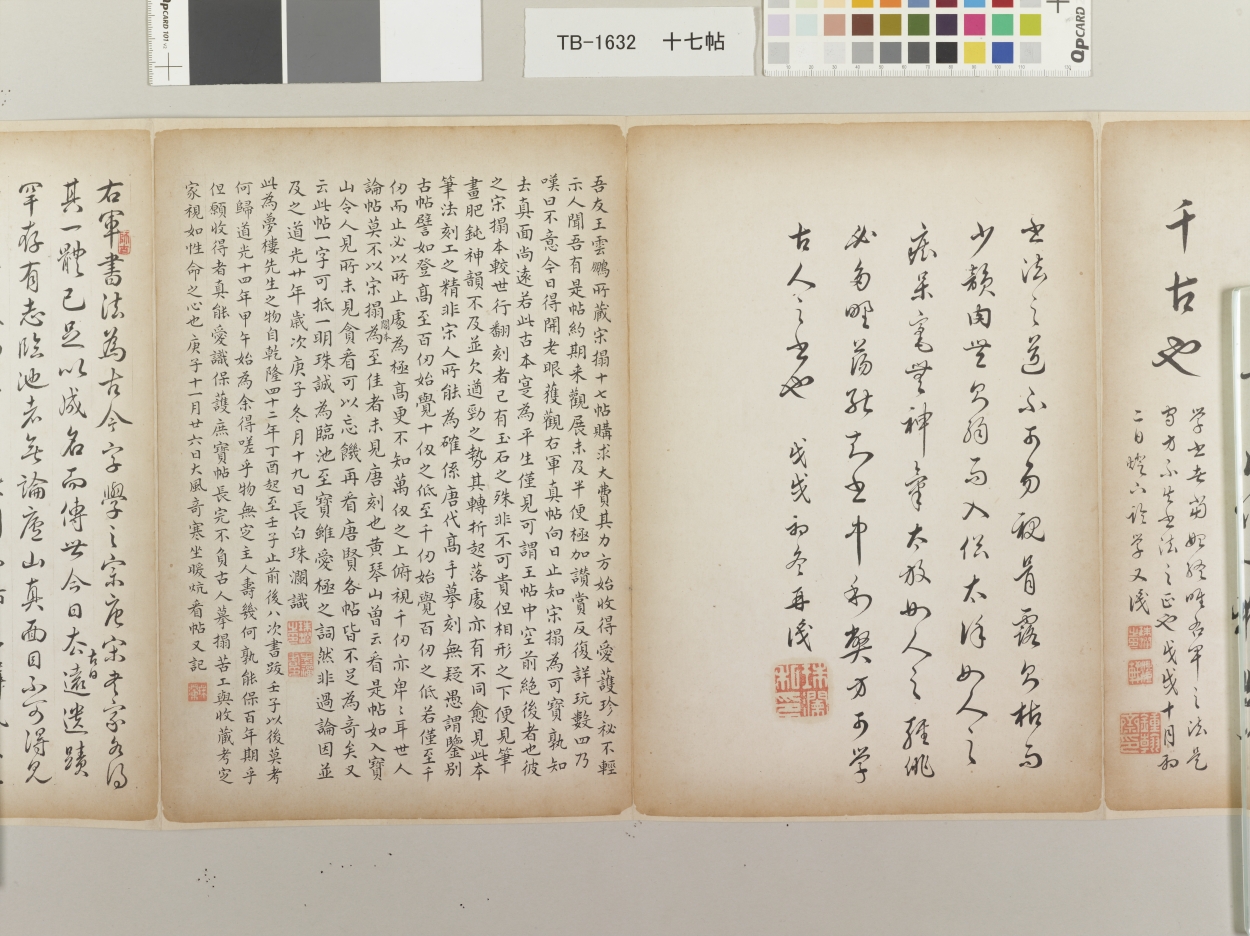 TB-1632 十七帖
QpCARD 101
QpCARD
千古也
二日燈下論学又識
书法之道不可易視骨露欠枯而
少韻肉豐欠弱而入俗太俗如人之
神氣太放如人之輕佻
必多野蕩能知书中和契方可学
古人之书也 戊戌初冬再識
吾友王雲鵬所藏宋搨十七帖購求大費其力方始收得愛護珍祕不輕
示人聞吾有是帖約期来觀展未及半便極加讚賞反復詳玩數四乃
嘆曰不意今日得開老眼獲觀右軍真帖向日止知宋搨為可寶孰知
去真面尚遠若此古本寔為平生僅見可謂王帖中空前絶後者也彼
之宋搨本較世行翻刻者已有玉石之殊非不可貴但相形之下便見筆
畫肥鈍神韻不及並欠遒勁之勢其轉折起落處亦有不同愈見此本
筆法刻工之精非宋人所能為確係唐代高手摹刻無疑愚謂鑒别
古帖譬如登高至百仞始覺十仞之低至千仞始覺百仞之低若僅至千
仞而止必以所止處為極高更不知萬仞之上俯視千仞亦卑之耳世人
論帖莫不以宋搨閣本為至佳者未見唐刻也黄琴山曽云看是帖如入寶
山令人見所未見貪看可以忘饑再看唐賢各帖皆不足為奇矣又
云此帖一字可抵一明珠誠為臨池至寶雖愛極之詞然非過論因並
及之道光廿年歲次庚子冬月十九日長白珠瀾識
此為夢樓先生之物自乾隆四十二年丁酉起至壬子止前後八次書跋壬子以後莫考
何歸道光十四年甲午始為余得嗟乎物無定主人壽幾何孰能保百年期乎
但願收得者真能愛識保護庶寶帖長完不負古人摹搨苦工與收藏考定
家視如性命之心也庚子十一月廿六日大風奇寒坐暖炕看帖又記
右軍書法為古今字學之宗唐宋老家各得
其一體已足以成名而傳世今日去古日太遠遺蹟
罕存有志臨池者無論廬山真面目不可得見